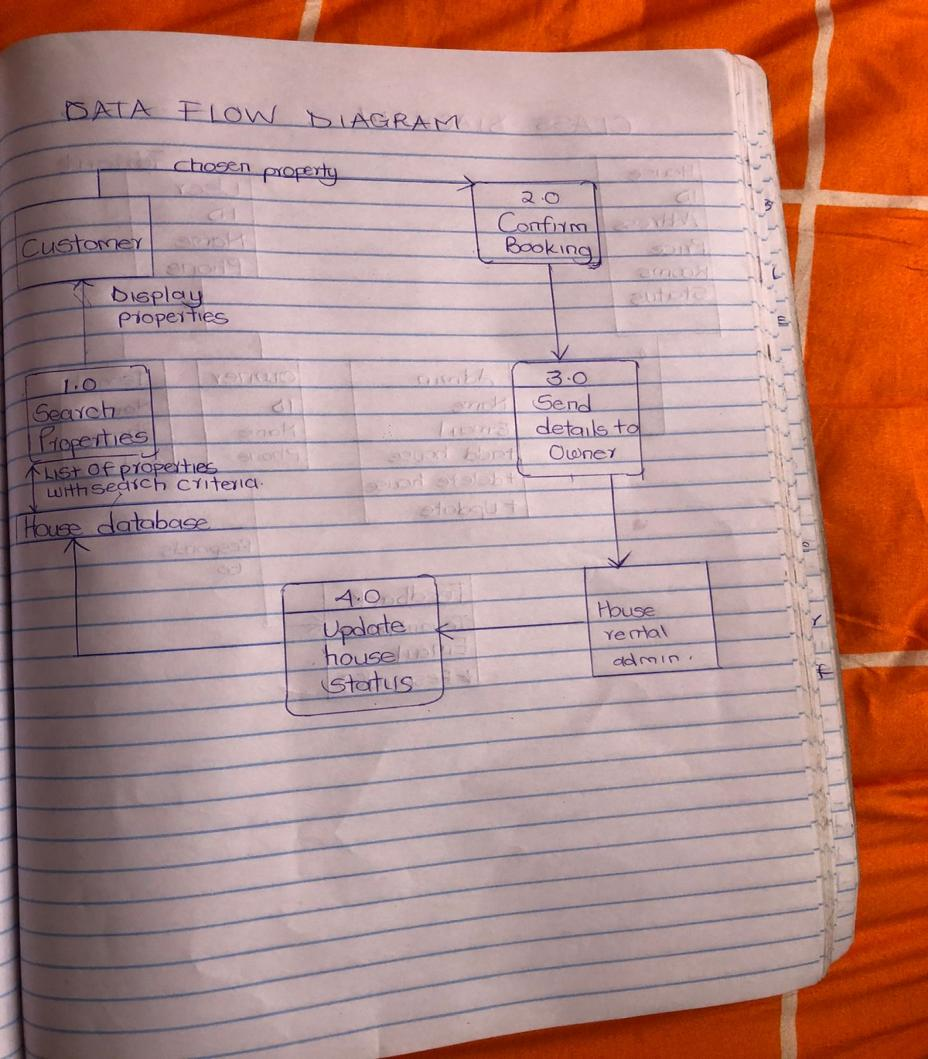 DATA FLOW DIAGRAM
Chosen property
2.0
Confirm
Booking
Customer
Display
properties
1.0
Search
Properties
3.0
Send
details to
Owner
List of properties
with search criteria.
House database
4.0
Update
house
Status
House
rental
admin.